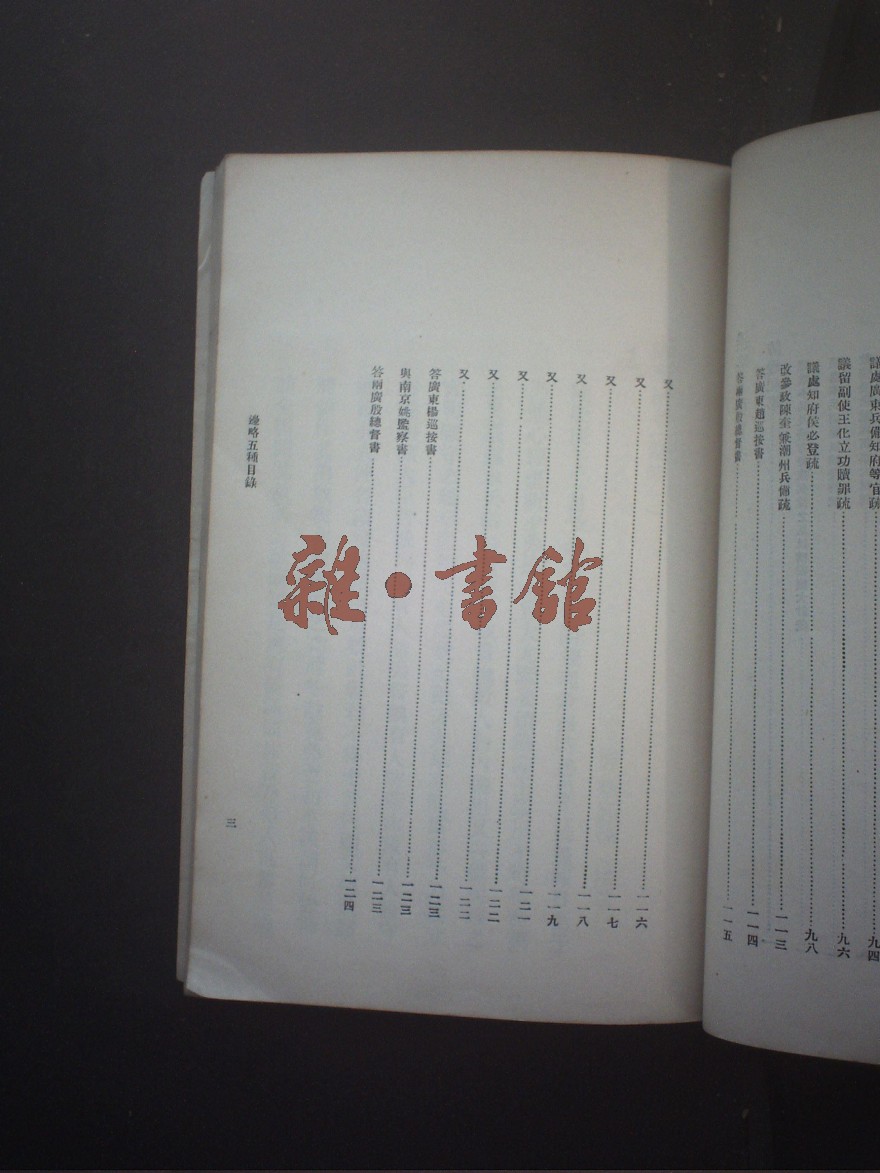 議處廣東兵備知府等官疏……九四
議留副使王化立功贖罪疏……九六
議處知府侯必登疏……九八
改參政陳奎兼潮州兵備疏……一一三
答廣東趙巡按書……一一四
答兩廣殷總督書……一一五
又……一一六
又……一一七
又……一一八
又……一一九
又……一二一
又……一二二
又……一二二
又……一二三
答廣東楊巡按書……一二三
與南京姚監察書……一二三
答兩廣殷總督書……一二四
邊略五種目錄
三
雜·書館